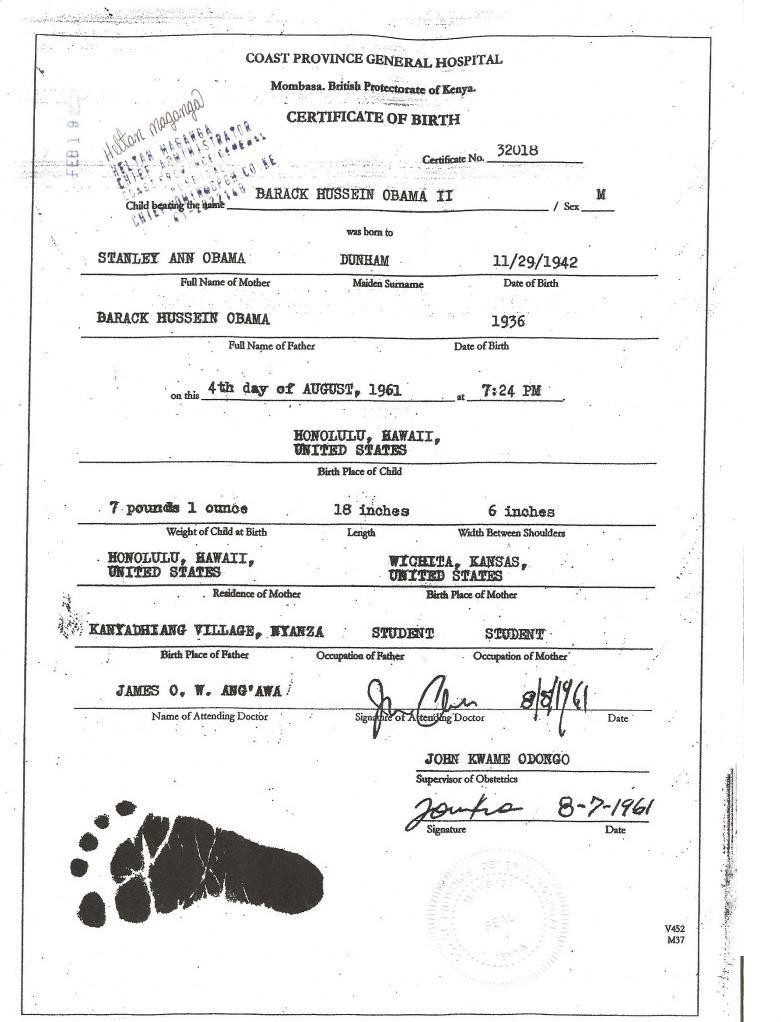 COAST PROVINCE GENERAL HOSPITAL
Mombasa. British Protectorate of Kenya.
CERTIFICATE OF BIRTH
FEB 19
Heltan Maganga
HELTAN MAGANGA
CHIEF ADMINISTRATOR
Certificate No. 32018
Child bearing the name BARACK HUSSEIN OBAMA II / Sex M
was born to
STANLEY ANN OBAMA DUNHAM 11/29/1942
Full Name of Mother Maiden Surname Date of Birth
BARACK HUSSEIN OBAMA 1936
Full Name of Father Date of Birth
on this 4th day of AUGUST, 1961 at 7:24 PM
HONOLULU, HAWAII,
UNITED STATES
Birth Place of Child
7 pounds 1 ounce 18 inches 6 inches
Weight of Child at Birth Length Width Between Shoulders
HONOLULU, HAWAII, WICHITA, KANSAS,
UNITED STATES UNITED STATES
Residence of Mother Birth Place of Mother
KANYADHIANG VILLAGE, NYANZA STUDENT STUDENT
Birth Place of Father Occupation of Father Occupation of Mother
JAMES O. W. ANG'AWA 8/8/1961
Name of Attending Doctor Signature of Attending Doctor Date
JOHN KWAME ODONGO
Supervisor of Obstetrics
8-7-1961
Signature Date
SEAL
V452
M37